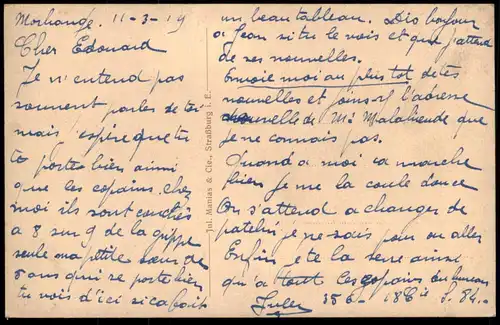 Morhange. 11-3-19
Cher Edouard
Je n'entend pas
souvent parler de toi
mais j'espère que tu
te portes bien ainsi
que les copains, chez
moi ils sont couchés
a 8 sur 9 de la grippe
seule ma ptite sœur de
8 ans qui se porte bien
tu vois d'ici si ca fait
Jul. Manias & Cie., Straßburg i. E.
un beau tableau. Dis bonjour
a Jean si tu le vois et que j'attend
de ses nouvelles.
Envoie moi au plus tot de tes
nouvelles et joins-y l'adresse
nouvelle de Mr que
je ne connais pas.
Quand a moi ca marche
bien je me la coule douce
On s'attend a changer de
patelin je ne sais pour ou aller
Enfin et a la tienne ainsi
qu'a tout les copains du bureau
Jules 356 - 18e Cie S. 84.-